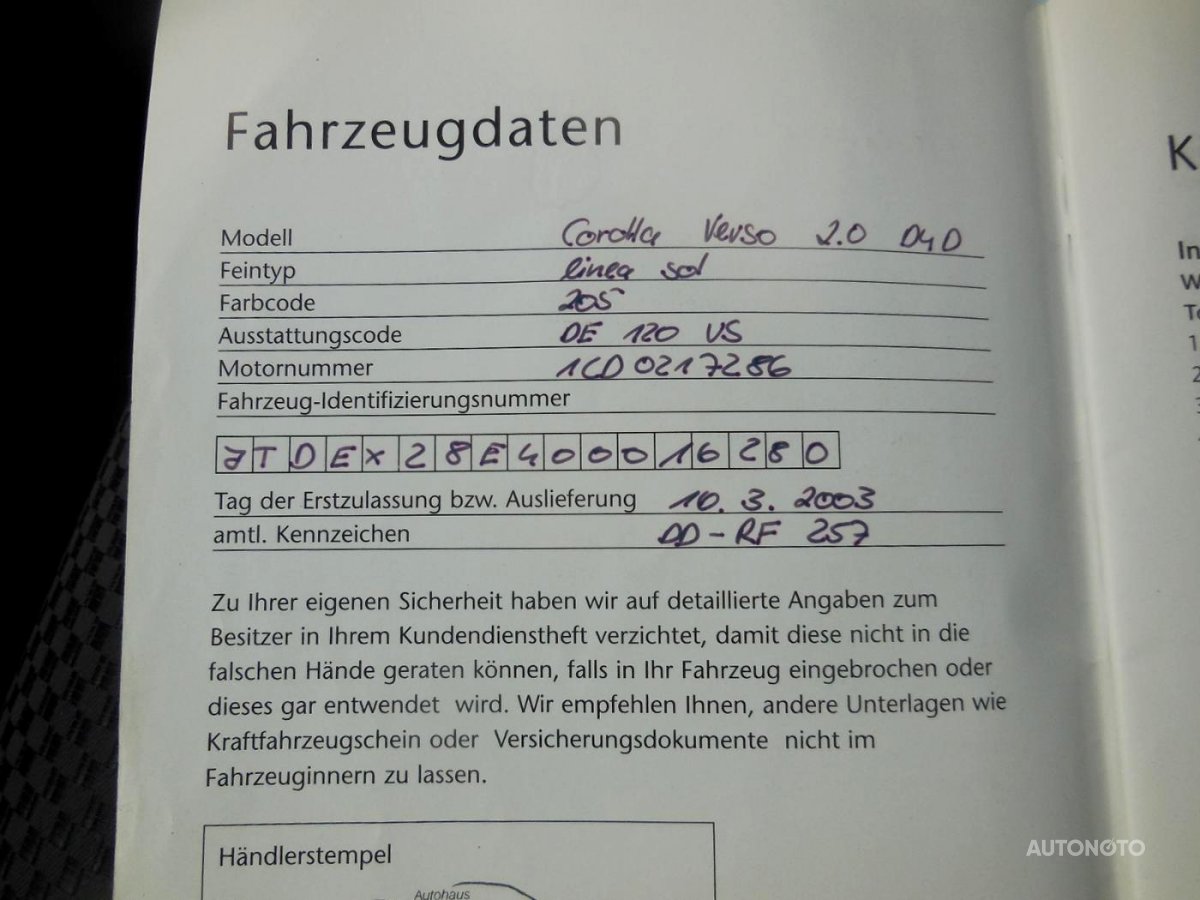 Fahrzeugdaten
Modell Corolla Verso 2.0 D4D
Feintyp linea sol
Farbcode 205
Ausstattungscode DE 120 VS
Motornummer 1CD 0217286
Fahrzeug-Identifizierungsnummer
JTDEX28E400016280
Tag der Erstzulassung bzw. Auslieferung 10. 3. 2003
amtl. Kennzeichen DD-RF 257
Zu Ihrer eigenen Sicherheit haben wir auf detaillierte Angaben zum
Besitzer in Ihrem Kundendienstheft verzichtet, damit diese nicht in die
falschen Hände geraten können, falls in Ihr Fahrzeug eingebrochen oder
dieses gar entwendet wird. Wir empfehlen Ihnen, andere Unterlagen wie
Kraftfahrzeugschein oder Versicherungsdokumente nicht im
Fahrzeuginnern zu lassen.
Händlerstempel
Autohaus
K
In
W
1
2
AUTONOTO